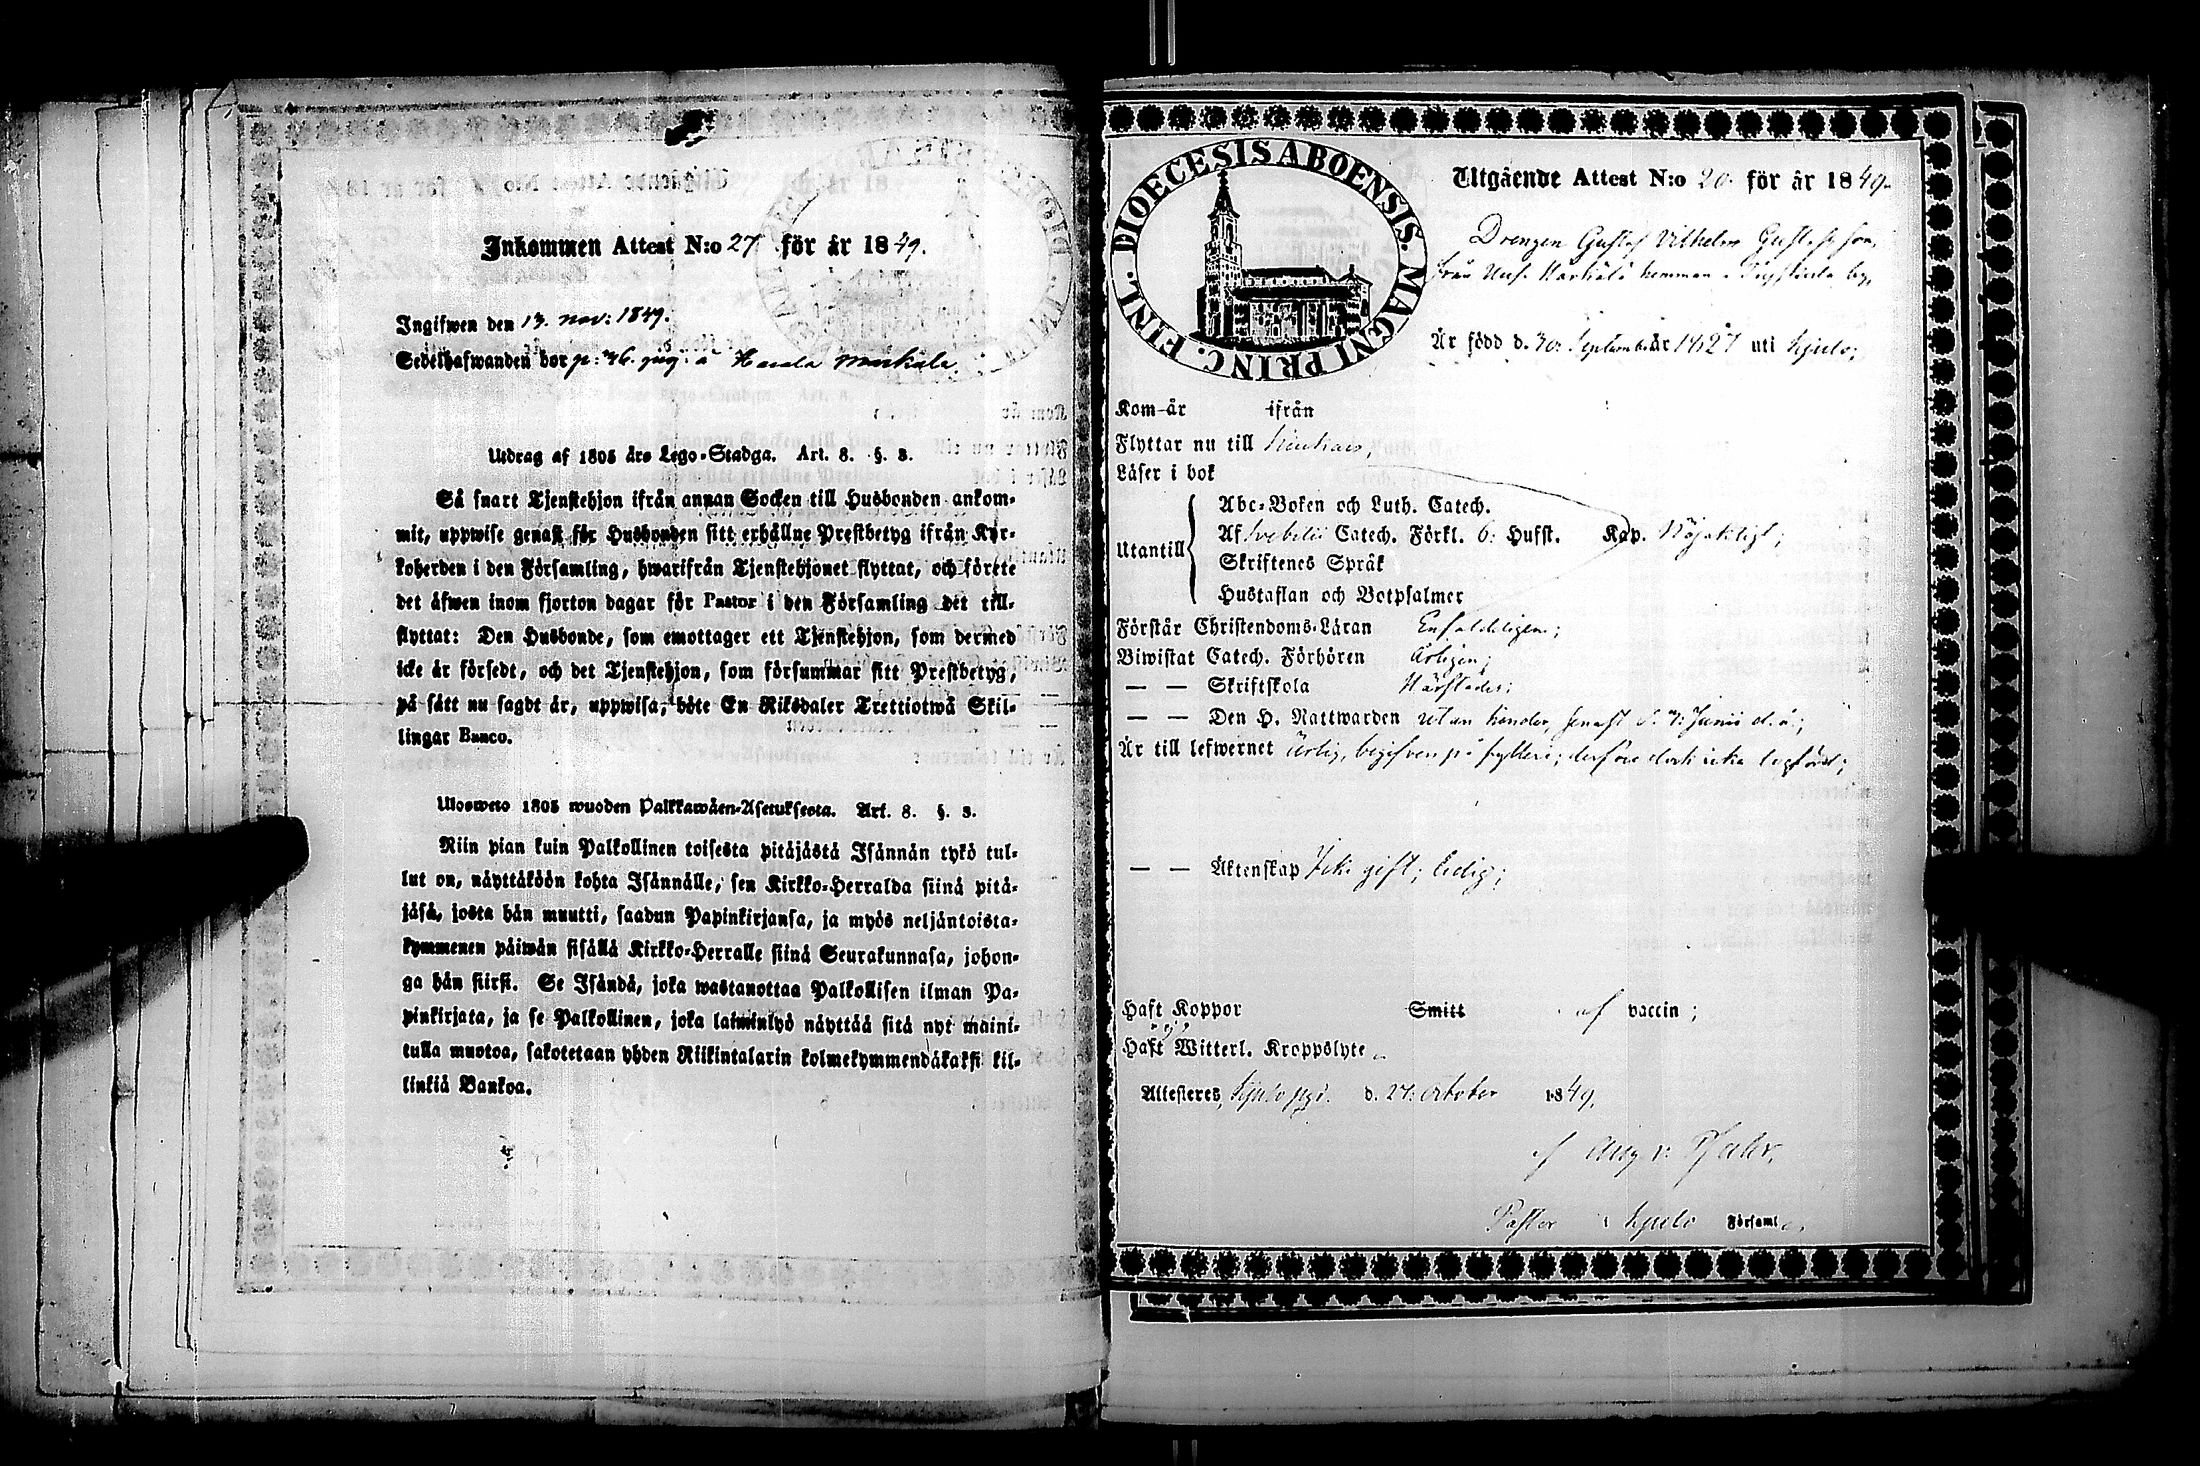 Inkommen Attest N:o 27 för år 1849.
Ingifwen den 13. nov: 1849.
Sedelhafwanden bor p: 46. å
Utdrag af 1805 års Lego-Stadga. Art. 8. §. 3.
Så snart Tjenstehjon ifrån annan Socken till Husbonden ankom-
mit, uppwise genast för Husbonden sitt erhållne Prestbetyg ifrån Kyr-
koherden i den Församling, hwarifrån Tjenstehjonet flyttat, och förete
det äfwen inom fjorton dagar för Pastor i den Församling det till-
flyttat: Den Husbonde, som emottager ett Tjenstehjon, som dermed
icke är försedt, och det Tjenstehjon, som försummar sitt Prestbetyg,
på sätt nu sagdt är, uppwisa, böte En Riksdaler Trettiotwå Skil-
lingar Banco.
Ulosweto 1805 wuoden Palkkawäen-Asetuksesta. Art. 8. §. 3.
Niin pian kuin Palkollinen toisesta pitäjästä Isännän tykö tul-
lut on, näyttäköön kohta Isännälle, sen Kirkko-Herralda siinä pitä-
jäsä, josta hän muutti, saadun Papinkirjansa, ja myös neljäntoista-
kymmenen päiwän sisällä Kirkko-Herralle siinä Seurakunnasa, johon-
ga hän siirsi. Se Isändä, joka wastanottaa Palkollisen ilman Pa-
pinkirjata, ja se Palkollinen, joka laiminlyö näyttää sitä nyt maini-
tulla muotoa, sakotetaan yhden Riikintalarin kolmekymmendäkaksi kil-
linkiä Bankoa.
DIOECESIS ABOENSIS. MAGNI PRINC. FINL.
Utgående Attest N:o 20. för år 1849.
Drengen Gustaf Vilhelm Gustafsson,
från hemman i by,
Är född d. 30. September år 1827 uti Kjulo;
Kom-år ifrån
Flyttar nu till
Läser i bok
Utantill
Abc-Boken och Luth. Catech.
Af Svebelii Catech. Förkl. 6: Hufst. Kap. Nöjaktigt;
Skriftenes Språk
Hustaflan och Botpsalmer
Förstår Christendoms-Läran Enfaldeligen;
Biwistat Catech. Förhören Årligen;
— — Skriftskola
— — Den H. Nattwarden utan hinder, senast d. Junii d. å.;
Är till lefwernet Ärlig, begifven på fylleri; derföre dock icke lagförd;
— — Äktenskap Icke gift; Ledig;
Haft Koppor Smitt af vaccin;
ej
Haft Witterl. Kroppslyte
Attesteres, Kjulo d. 27. October 1849.
af Aug v: Pfaler,
Pastor i Kjulo Församl.